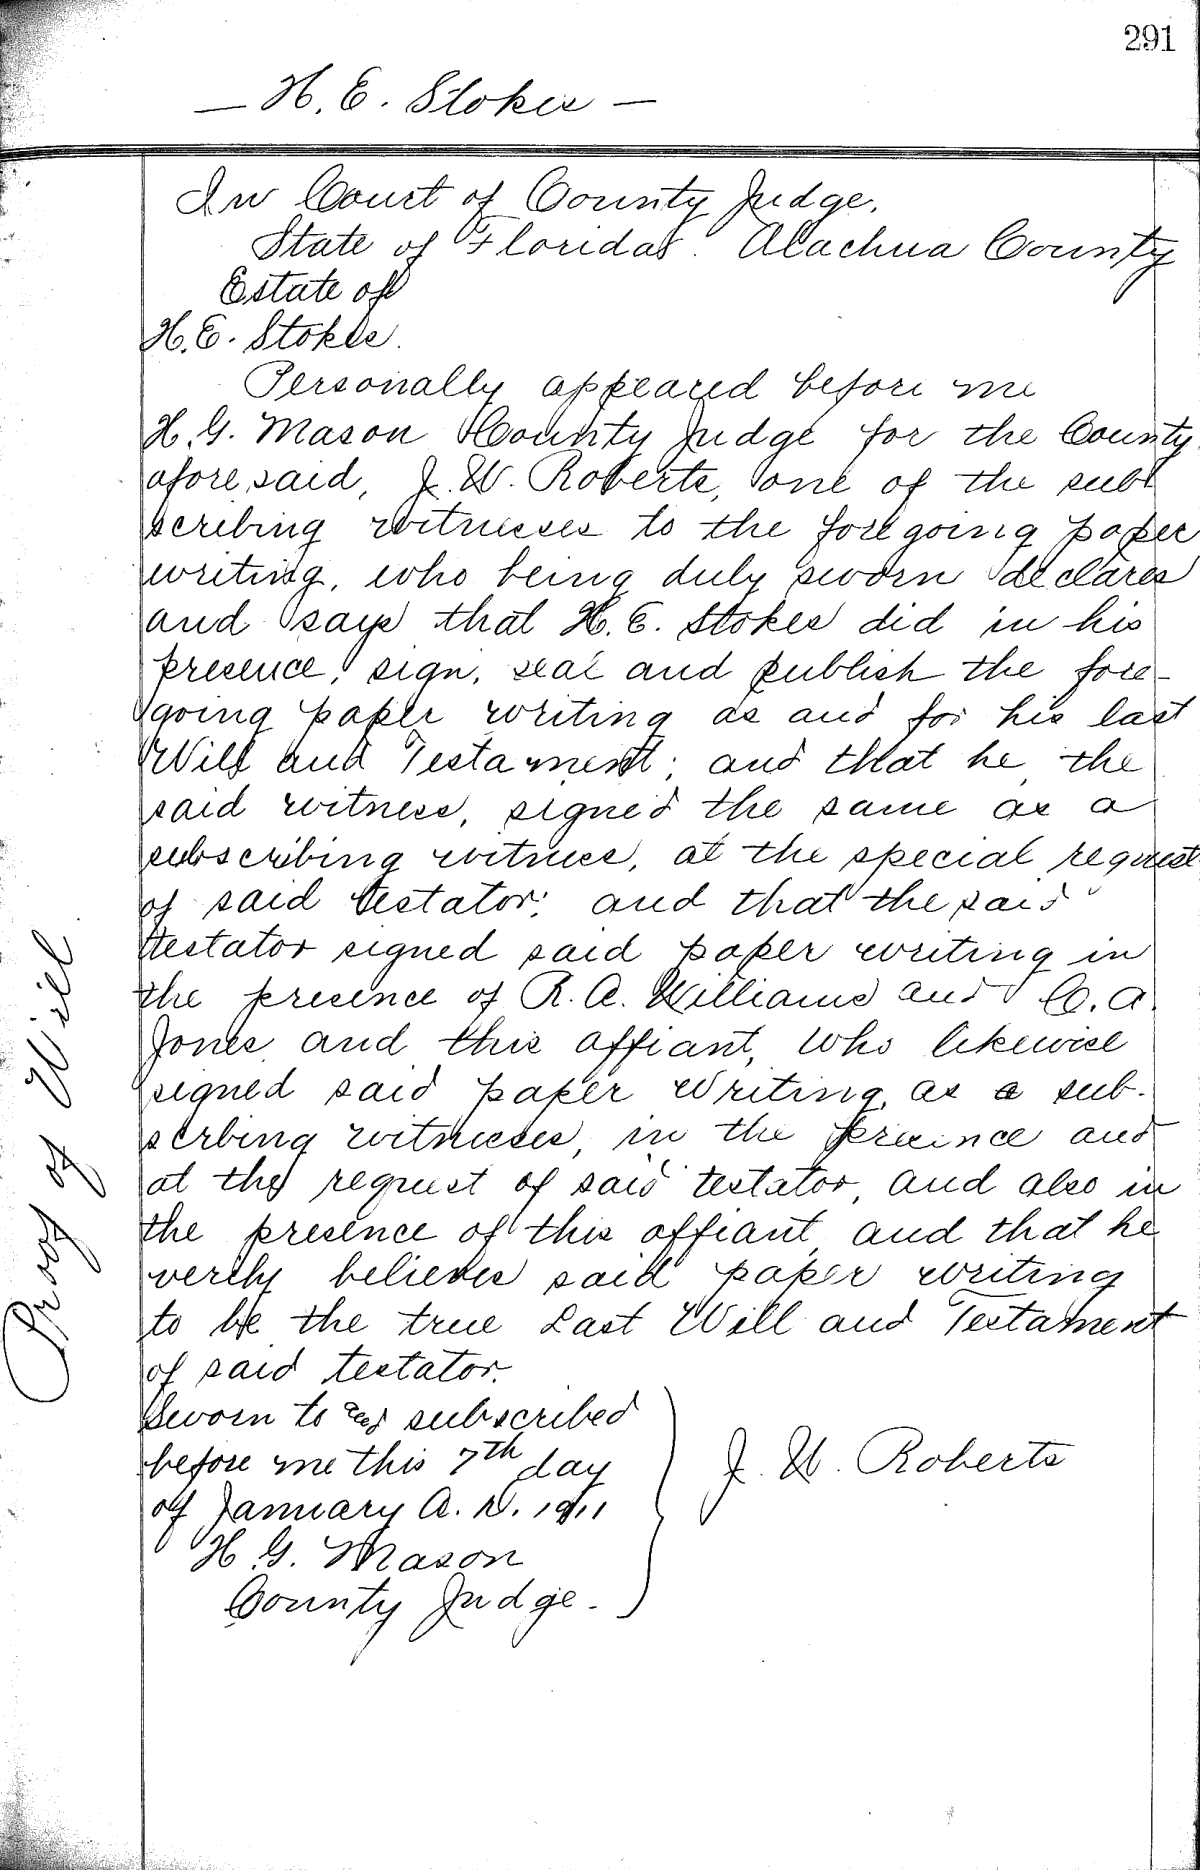 291
— H. E. Stokes —
In Court of County Judge.
State of Florida. Alachua County
Estate of
H. E. Stokes.
Personally appeared before me
H. G. Mason County Judge for the County
aforesaid, J. W. Roberts, one of the sub
scribing witnesses to the foregoing paper
writing, who being duly sworn declares
and says that H. E. Stokes did in his
presence, sign, seal and publish the fore-
going paper writing as and for his last
Will and Testament; and that he the
said witness, signed the same as a
subscribing witness, at the special request
of said testator; and that the said
testator signed said paper writing in
the presence of R. A. Williams and C. A.
Jones and this affiant, who likewise
signed said paper writing, as a sub-
scrbing witnesses, in the presence and
at the request of said testator, and also in
the presence of this affiant, and that he
verily believes said paper writing
to be the true Last Will and Testament
of said testator.
Sworn to and subscribed
before me this 7th day
of January A. D. 1911
H. G. Mason
County Judge.
J. W. Roberts
Proof of Will